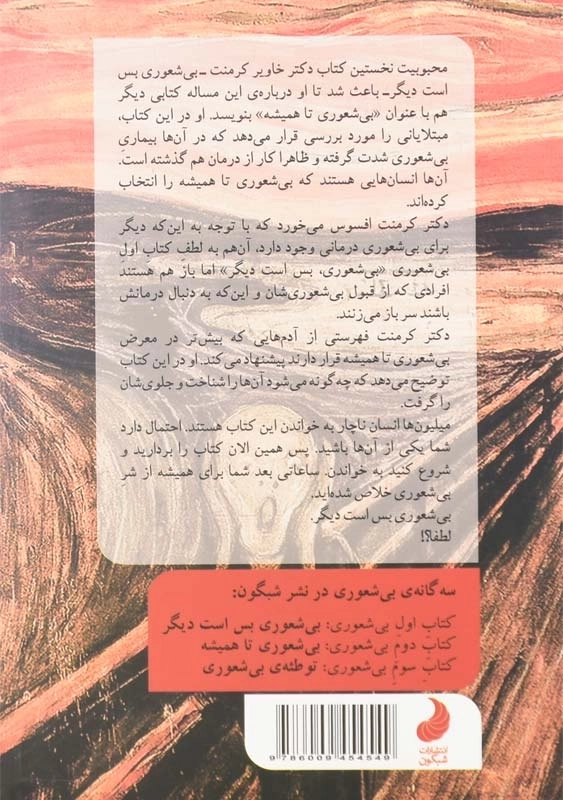 محبوبیت نخستین کتاب دکتر خاویر کرمنت ـ بی‌شعوری بس
است دیگرـ باعث شد تا او درباره‌ی این مساله کتابی دیگر
هم با عنوان «بی‌شعوری تا همیشه» بنویسد. او در این کتاب،
مبتلایانی را مورد بررسی قرار می‌دهد که در آن‌ها بیماریِ
بی‌شعوری شدت گرفته و ظاهرا کار از درمان هم گذشته است.
آن‌ها انسان‌هایی هستند که بی‌شعوری تا همیشه را انتخاب
کرده‌اند.
دکتر کرمنت افسوس می‌خورد که با توجه به این‌که دیگر
برای بی‌شعوری درمانی وجود دارد، آن‌هم به لطف کتاب اول
بی‌شعوری «بی‌شعوری، بس است دیگر» اما باز هم هستند
افرادی که از قبول بی‌شعوری‌شان و این‌که به دنبال درمانش
باشند سر باز می‌زنند.
دکتر کرمنت فهرستی از آدم‌هایی که بیش‌تر در معرض
بی‌شعوری تا همیشه قرار دارند پیشنهاد می‌کند. او در این کتاب
توضیح می‌دهد که چه‌گونه می‌شود آن‌ها را شناخت و جلوی‌شان
را گرفت.
میلیون‌ها انسان ناچار به خواندن این کتاب هستند. احتمال دارد
شما یکی از آن‌ها باشید. پس همین الان کتاب را بردارید و
شروع کنید به خواندن. ساعاتی بعد شما برای همیشه از شر
بی‌شعوری خلاص شده‌اید.
بی‌شعوری بس است دیگر.
لطفا؟!
سه گانه‌ی بی‌شعوری در نشر شبگون:
کتاب اولِ بی‌شعوری: بی‌شعوری بس است دیگر
کتاب دومِ بی‌شعوری: بی‌شعوری تا همیشه
کتاب سومِ بی‌شعوری: توطئه‌ی بی‌شعوری
انتشارات
شبگون
9 786009 454549